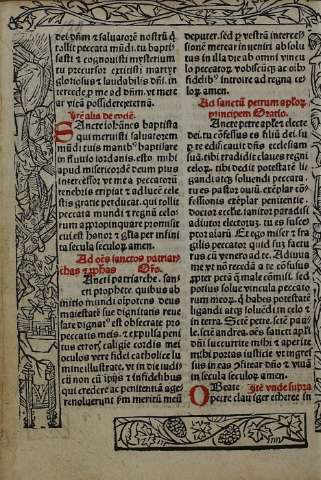 dei dñm et saluatorē nostrū q̄
tollit peccata mūdi. tu bapti
sasti et cognouisti mysterium
tu precursor extitisti martyr
gloriosus et laudabilis dñi. in
tercede p me ad dñm. vt mere
ar vitā possidere eternā.
Itē alia de eodē.
Sancte iohānes baptista
qui meruisti saluatorem
mūdi tuis manibꝰ baptisare
in fluuio iordanis. esto mihi
apud misericordē deum pius
intercessor vt me a peccatorū
tenebris eripiat et ad lucē cele
stis gratie perducat. qui tollit
peccata mundi et regnū celo
rum appropinquare promisit
cui est honor et glia per infini
ta secula seculorꝝ. amen.
Ad oēs sanctos patriar
chas et ꝓphās Oro.
Sancti patriarche. san
cti prophete. quibus ab
initio mundi oīpotens deus
maiestatē sue dignitatis reue
lare dignatꝰ est obsecrate pro
peccatis meis. et expulsa peni
tus errorꝭ caligie cordis mei
oculos vere fidei catholice lu
mine illustrate. vt in die iudi
cii non cū ipīs et infidelibus
qui credere ac penitentiā age
re noluerunt fm meritū meū
deputer. sed per vestrā interces
sionē merear inueniri absolu
tus in illa die ab omni vincu
lo peccatorꝝ. vobiscūqꝫ ac oībꝰ
fidelibꝰ introire ad regna ce
lorꝝ. amen.
Ad sanctū petrum aplorꝝ
principem Oratio.
Sancte petre aple electe
dei. tu cōfessus es filiū dei. su
p te edificauit dñs ecclesiam
suā. tibi tradidit claues regni
celorꝝ. tibi cedidit potestatē li
gandi atqꝫ soluendi peccata.
tu es pastor ouiū. exēplar con
fessionis exēplar penitentie.
doctor ecclīe. ianitor paradisi
adiutor electorꝝ. tu es suscep
tor aīarū. Ego miser et fra
gilis peccator quid suꝫ factu
rus cū venero ad te. Adiuua
me vt nō receda a te cōfusus
propter pctā q̄ male cōmisi. sed
potius solue vincula peccato
rum meorꝝ. q̄ habes potestatē
ligandi atqꝫ soluendi in celo et
in terra. Sctē petre. sctē pau
le. sctē andrea. oēs sancti apłi
dñi succurrite mihi et aperite
mihi portas iusticie vt ingres
sus in eas cōfitear dño et viuā
in secula seculorꝝ amen.
O Beate Itē vnde supra
Petre clauiger etheree in